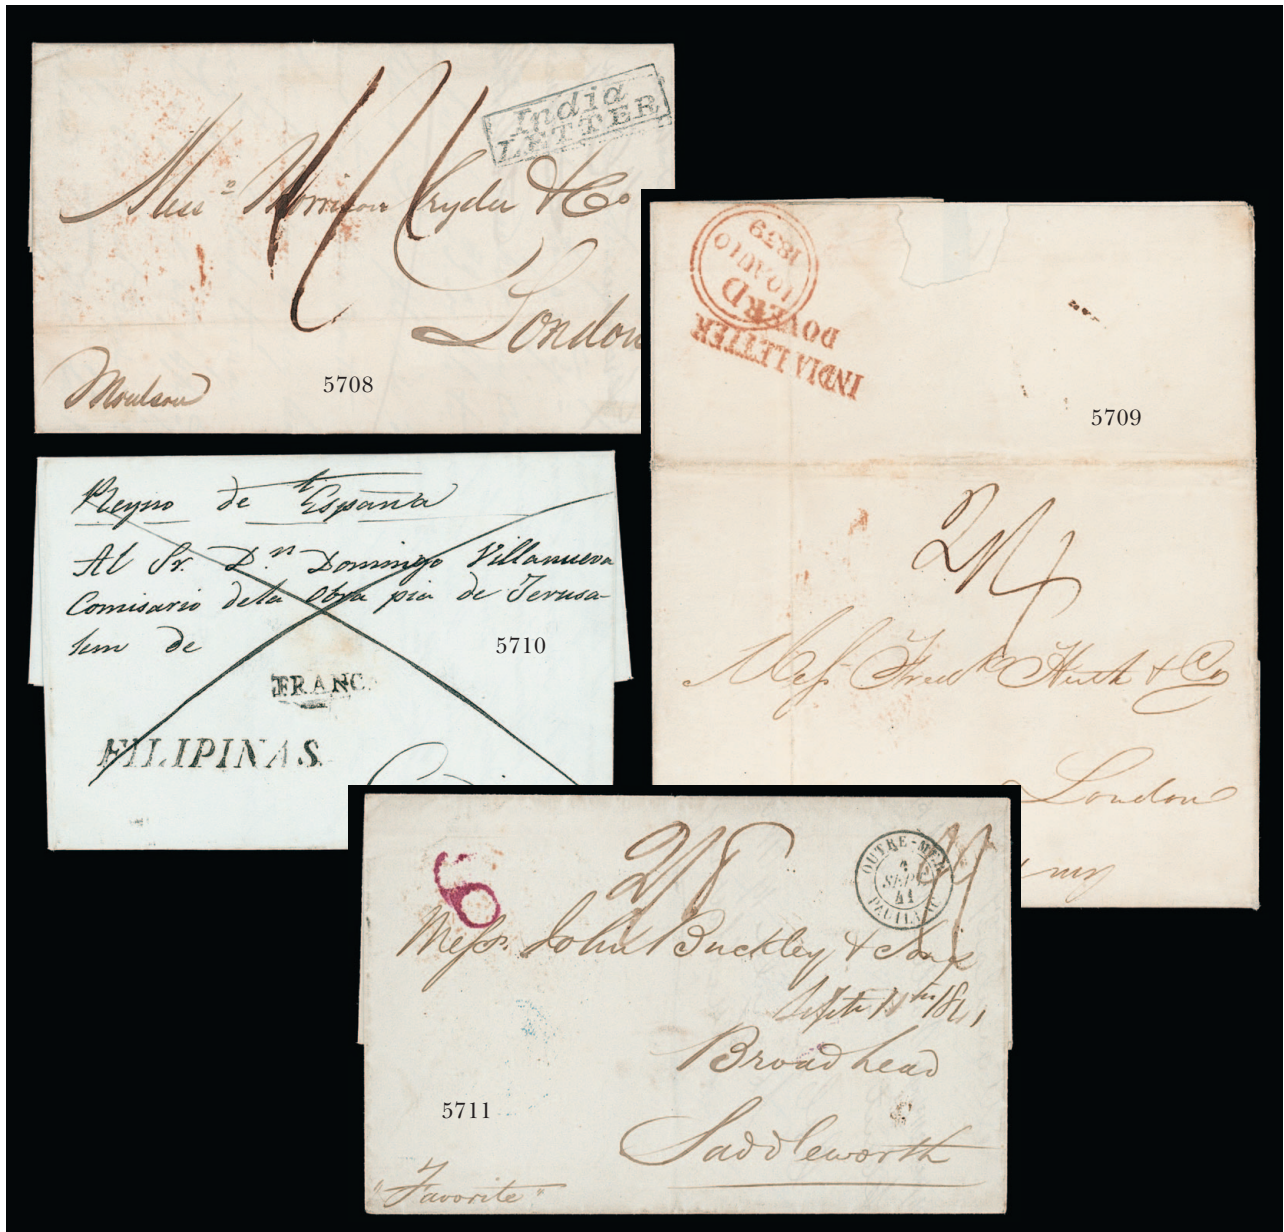 India
LETTER
Mess.rs Morrison Cryder & Co
London
Moulson
5708
1839
10 AU 10
DOVER D
INDIA LETTER
5709
2/4
Mess.rs Fred.k Huth & Co
London
Reyno de España
Al Sr. D.n Domingo Villanueva
Comisario dela Obra pia de Jerusa-
lem de
5710
FRANC
FILIPINAS.
6
2/8
OUTRE-MER
SEPT
41
PAUILLAC
Mess.rs John Buckley & Sons
Sept 11th 1841
Broadhead
Saddleworth
5711
"Favorite"